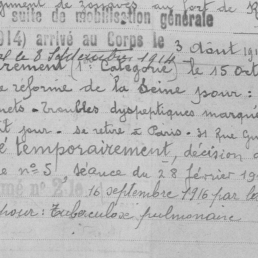 de zouaves au fort de
suite de mobilisation générale
14) arrivé au Corps le 3 août 19
le 8 septembre 1914
(1e Catégorie) le 15 Oct
e réforme de la Seine pour :
troubles dyspeptiques marqués
jour - se retire à Paris - 31 Rue
é temporairement, décision
e n°5, séance du 28 février 19
mé n°2, le 16 septembre 1916 par la
pour : Tuberculose pulmonaire